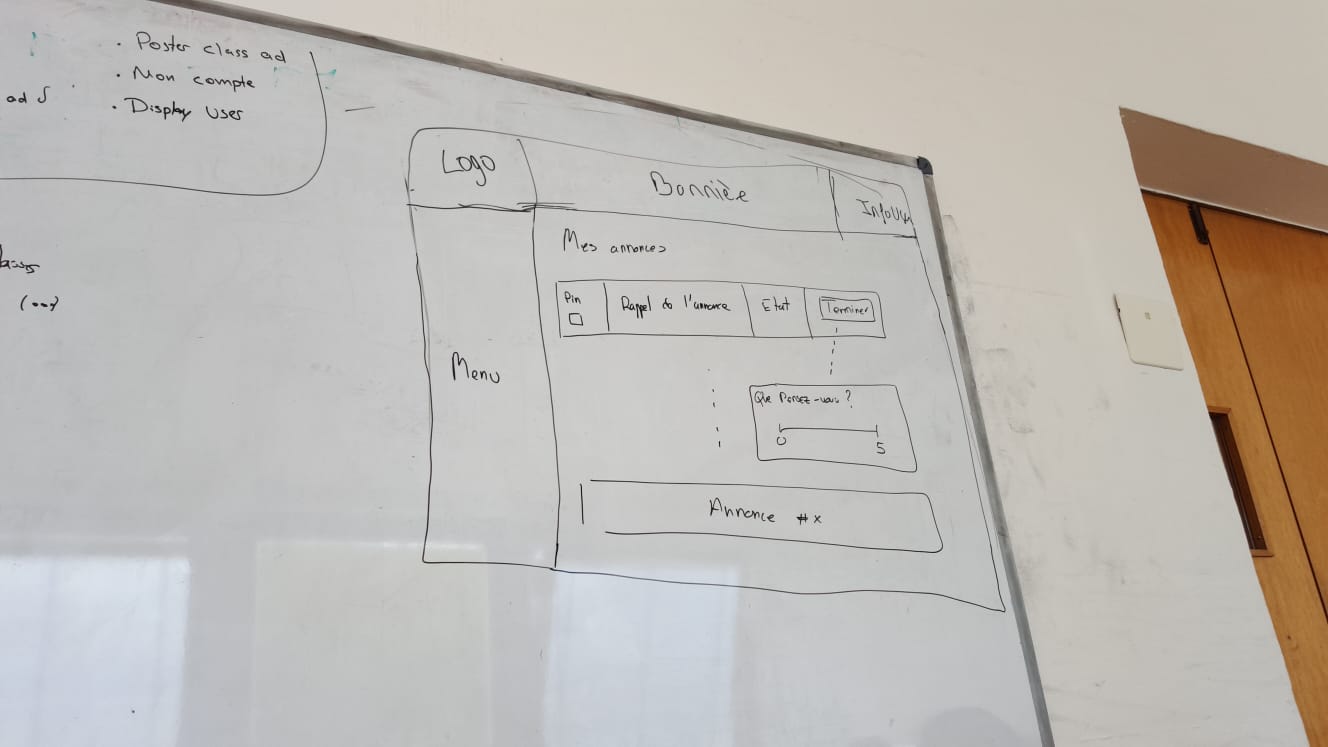 . Poster class ad
. Mon compte
ad
. Display users
(...)
Logo
Bannière
Menu
Mes annonces
Pin
Rappel de l'annonce
Etat
Terminer
Que Pensez-vous ?
0
5
Annonce #x